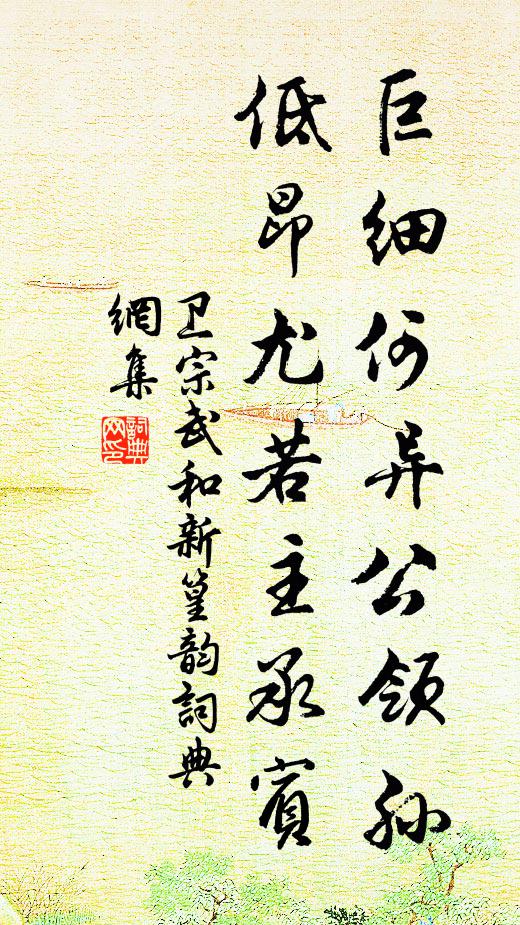 巨细何异公领孙
低昂尤若主承宾
卫宗武和新篁韵詞典
網集
詞典
网印